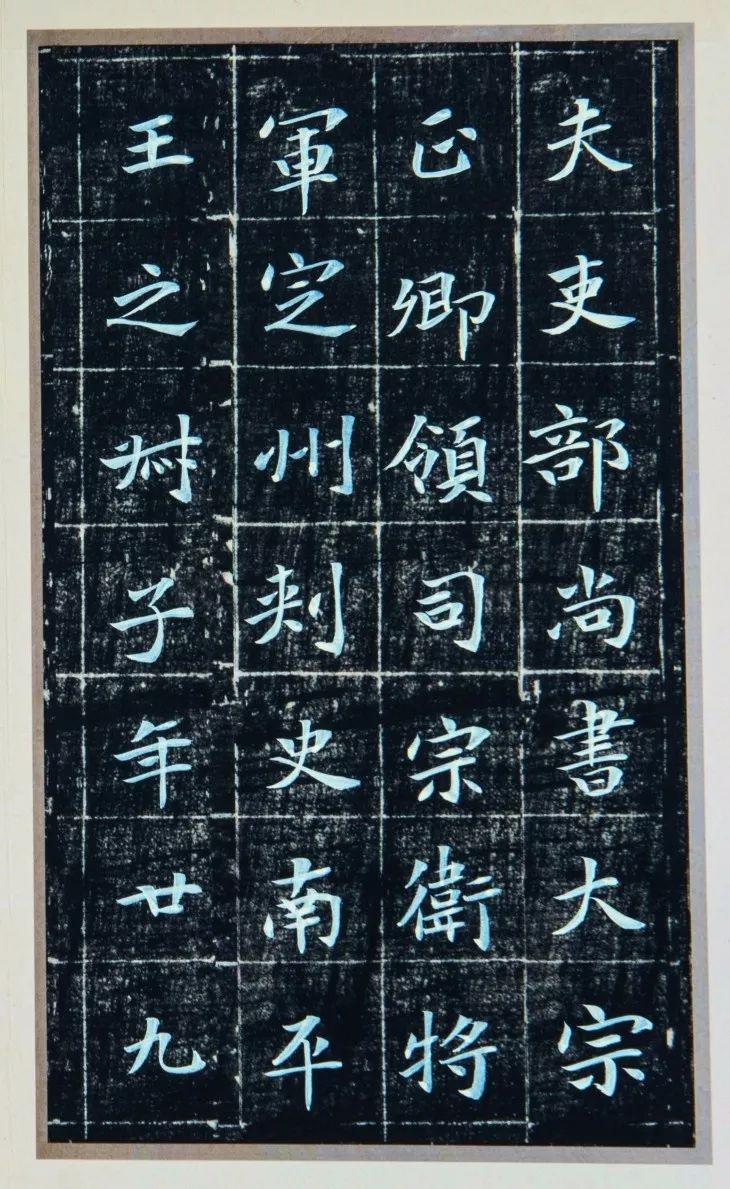 夫吏部尚書大宗
正卿領司宗衛將
軍定州刾史南平
王之子年廿九